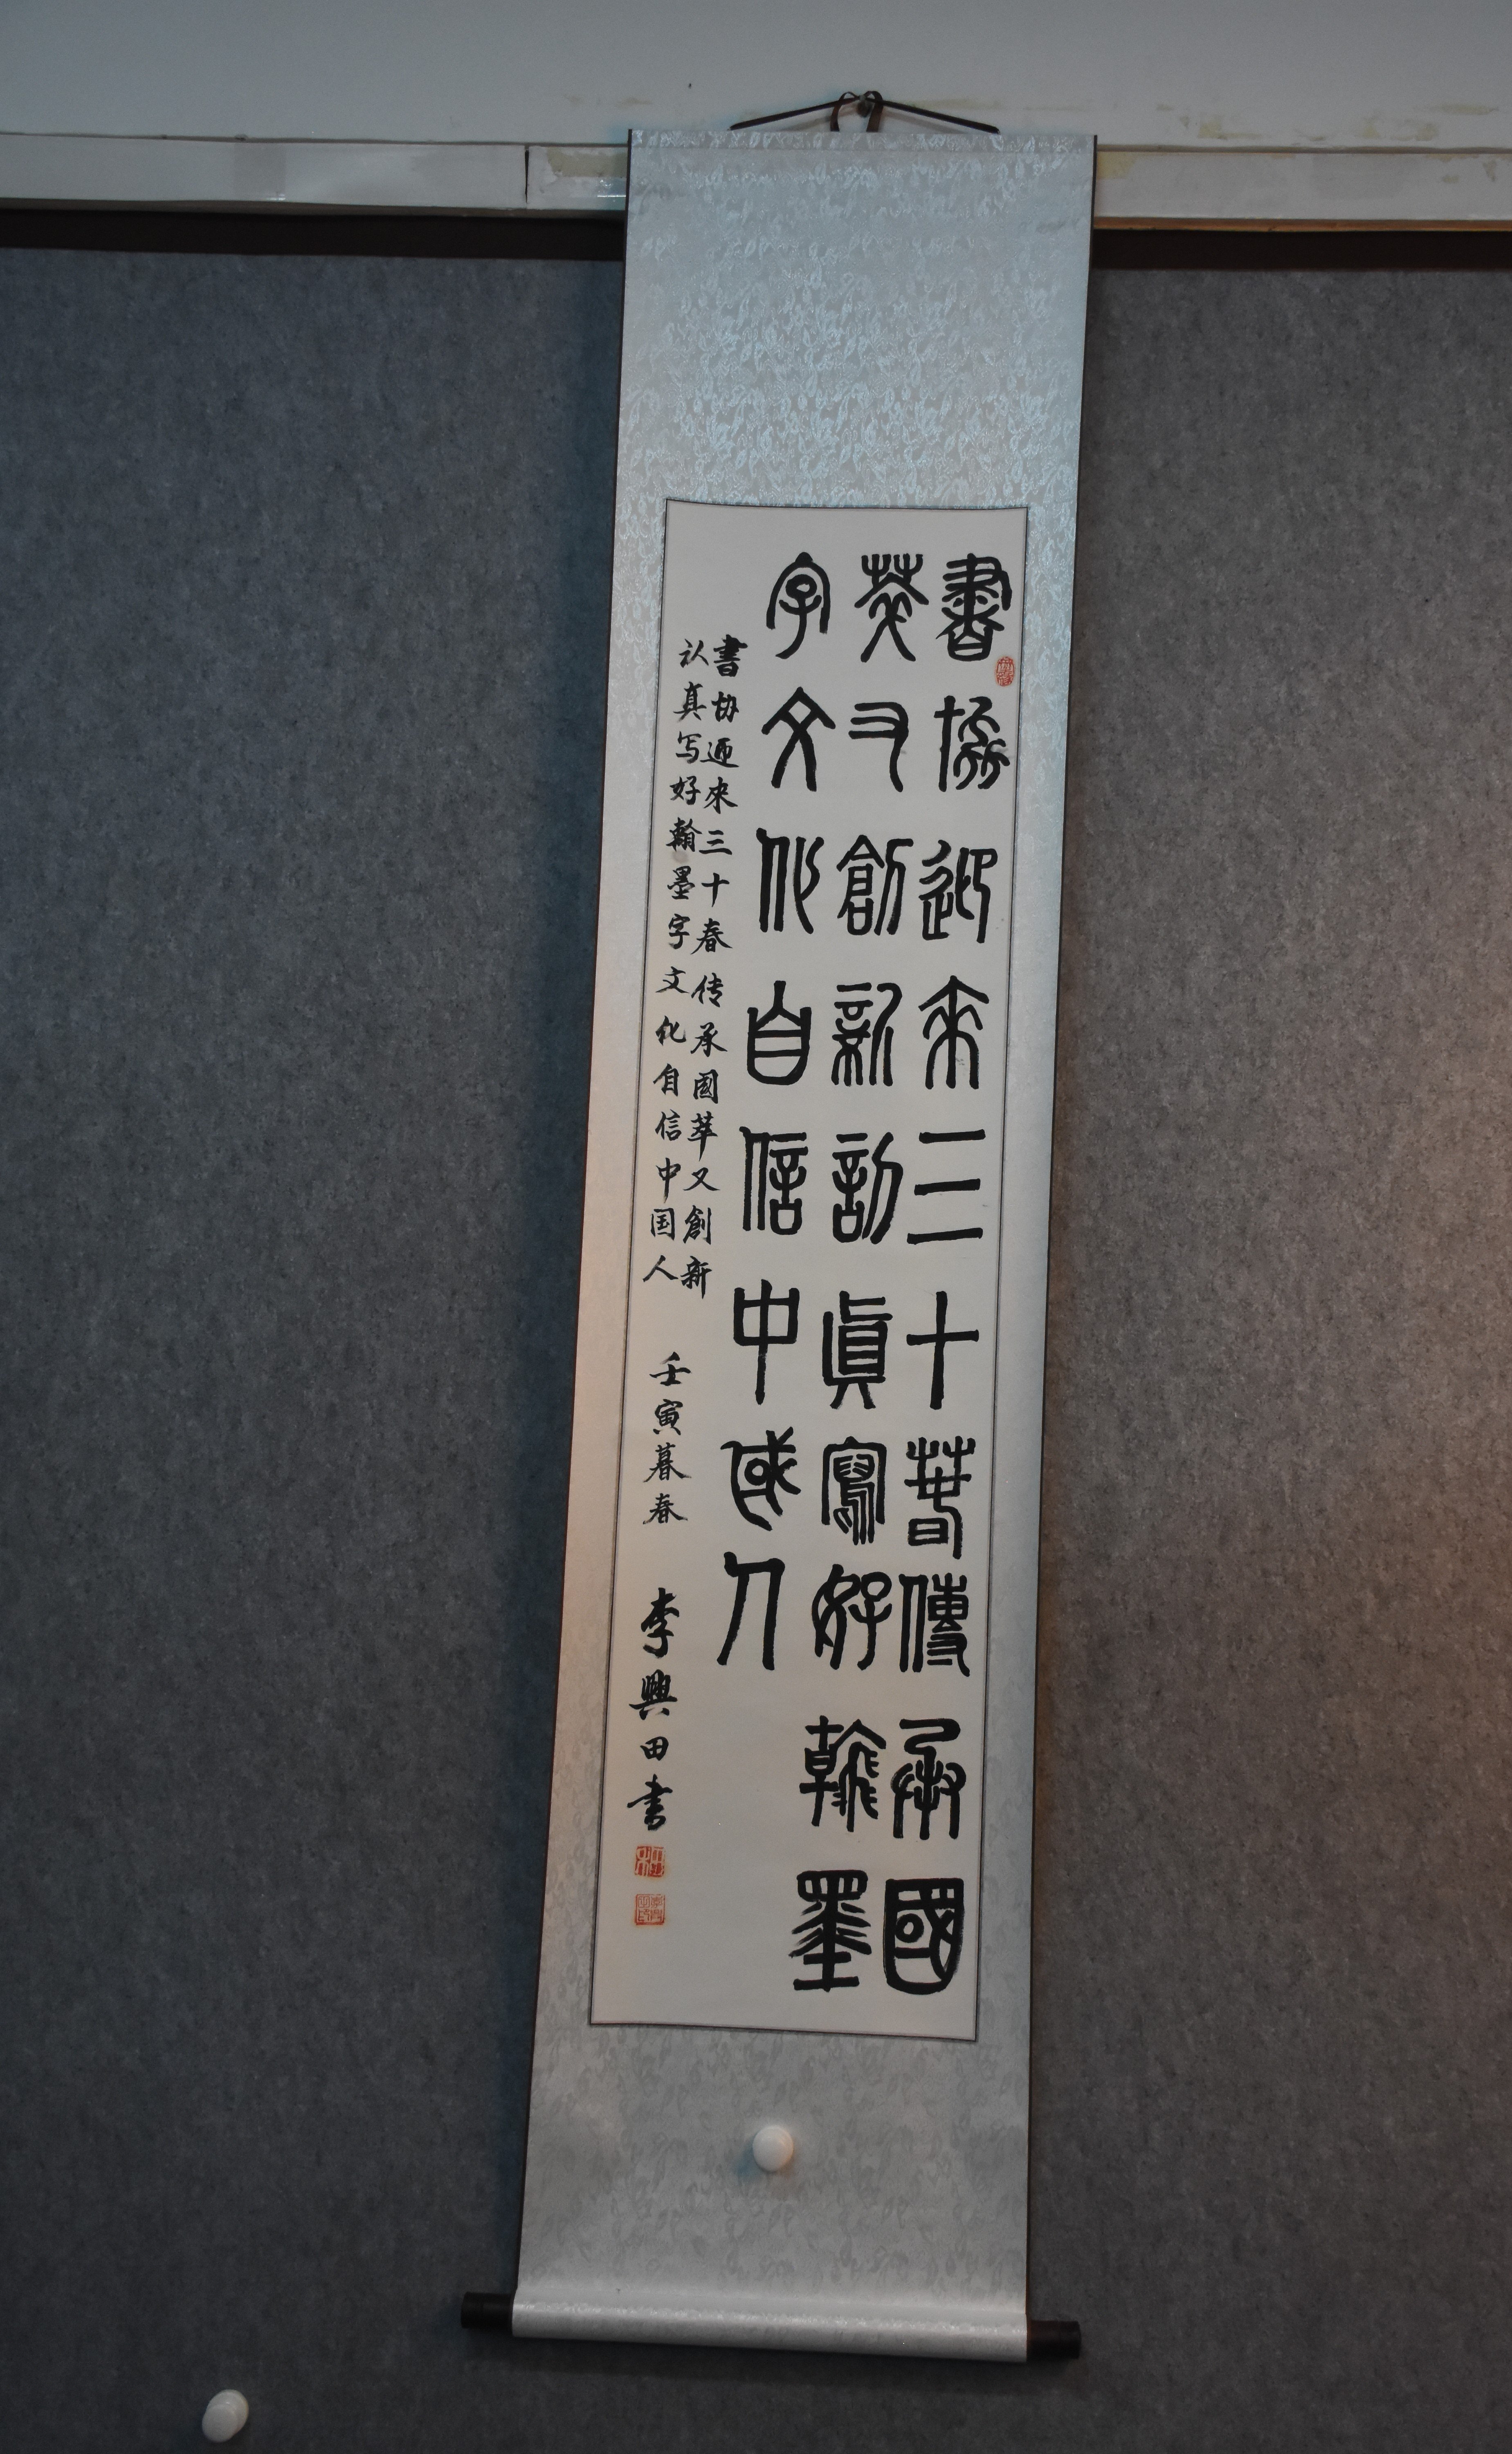 書協迎來三十春傳承國
萃又創新訒真寫好翰墨
字文化自信中或人
書协迎來三十春传承國萃又創新
认真写好翰墨字文化自信中国人 壬寅暮春 李興田书